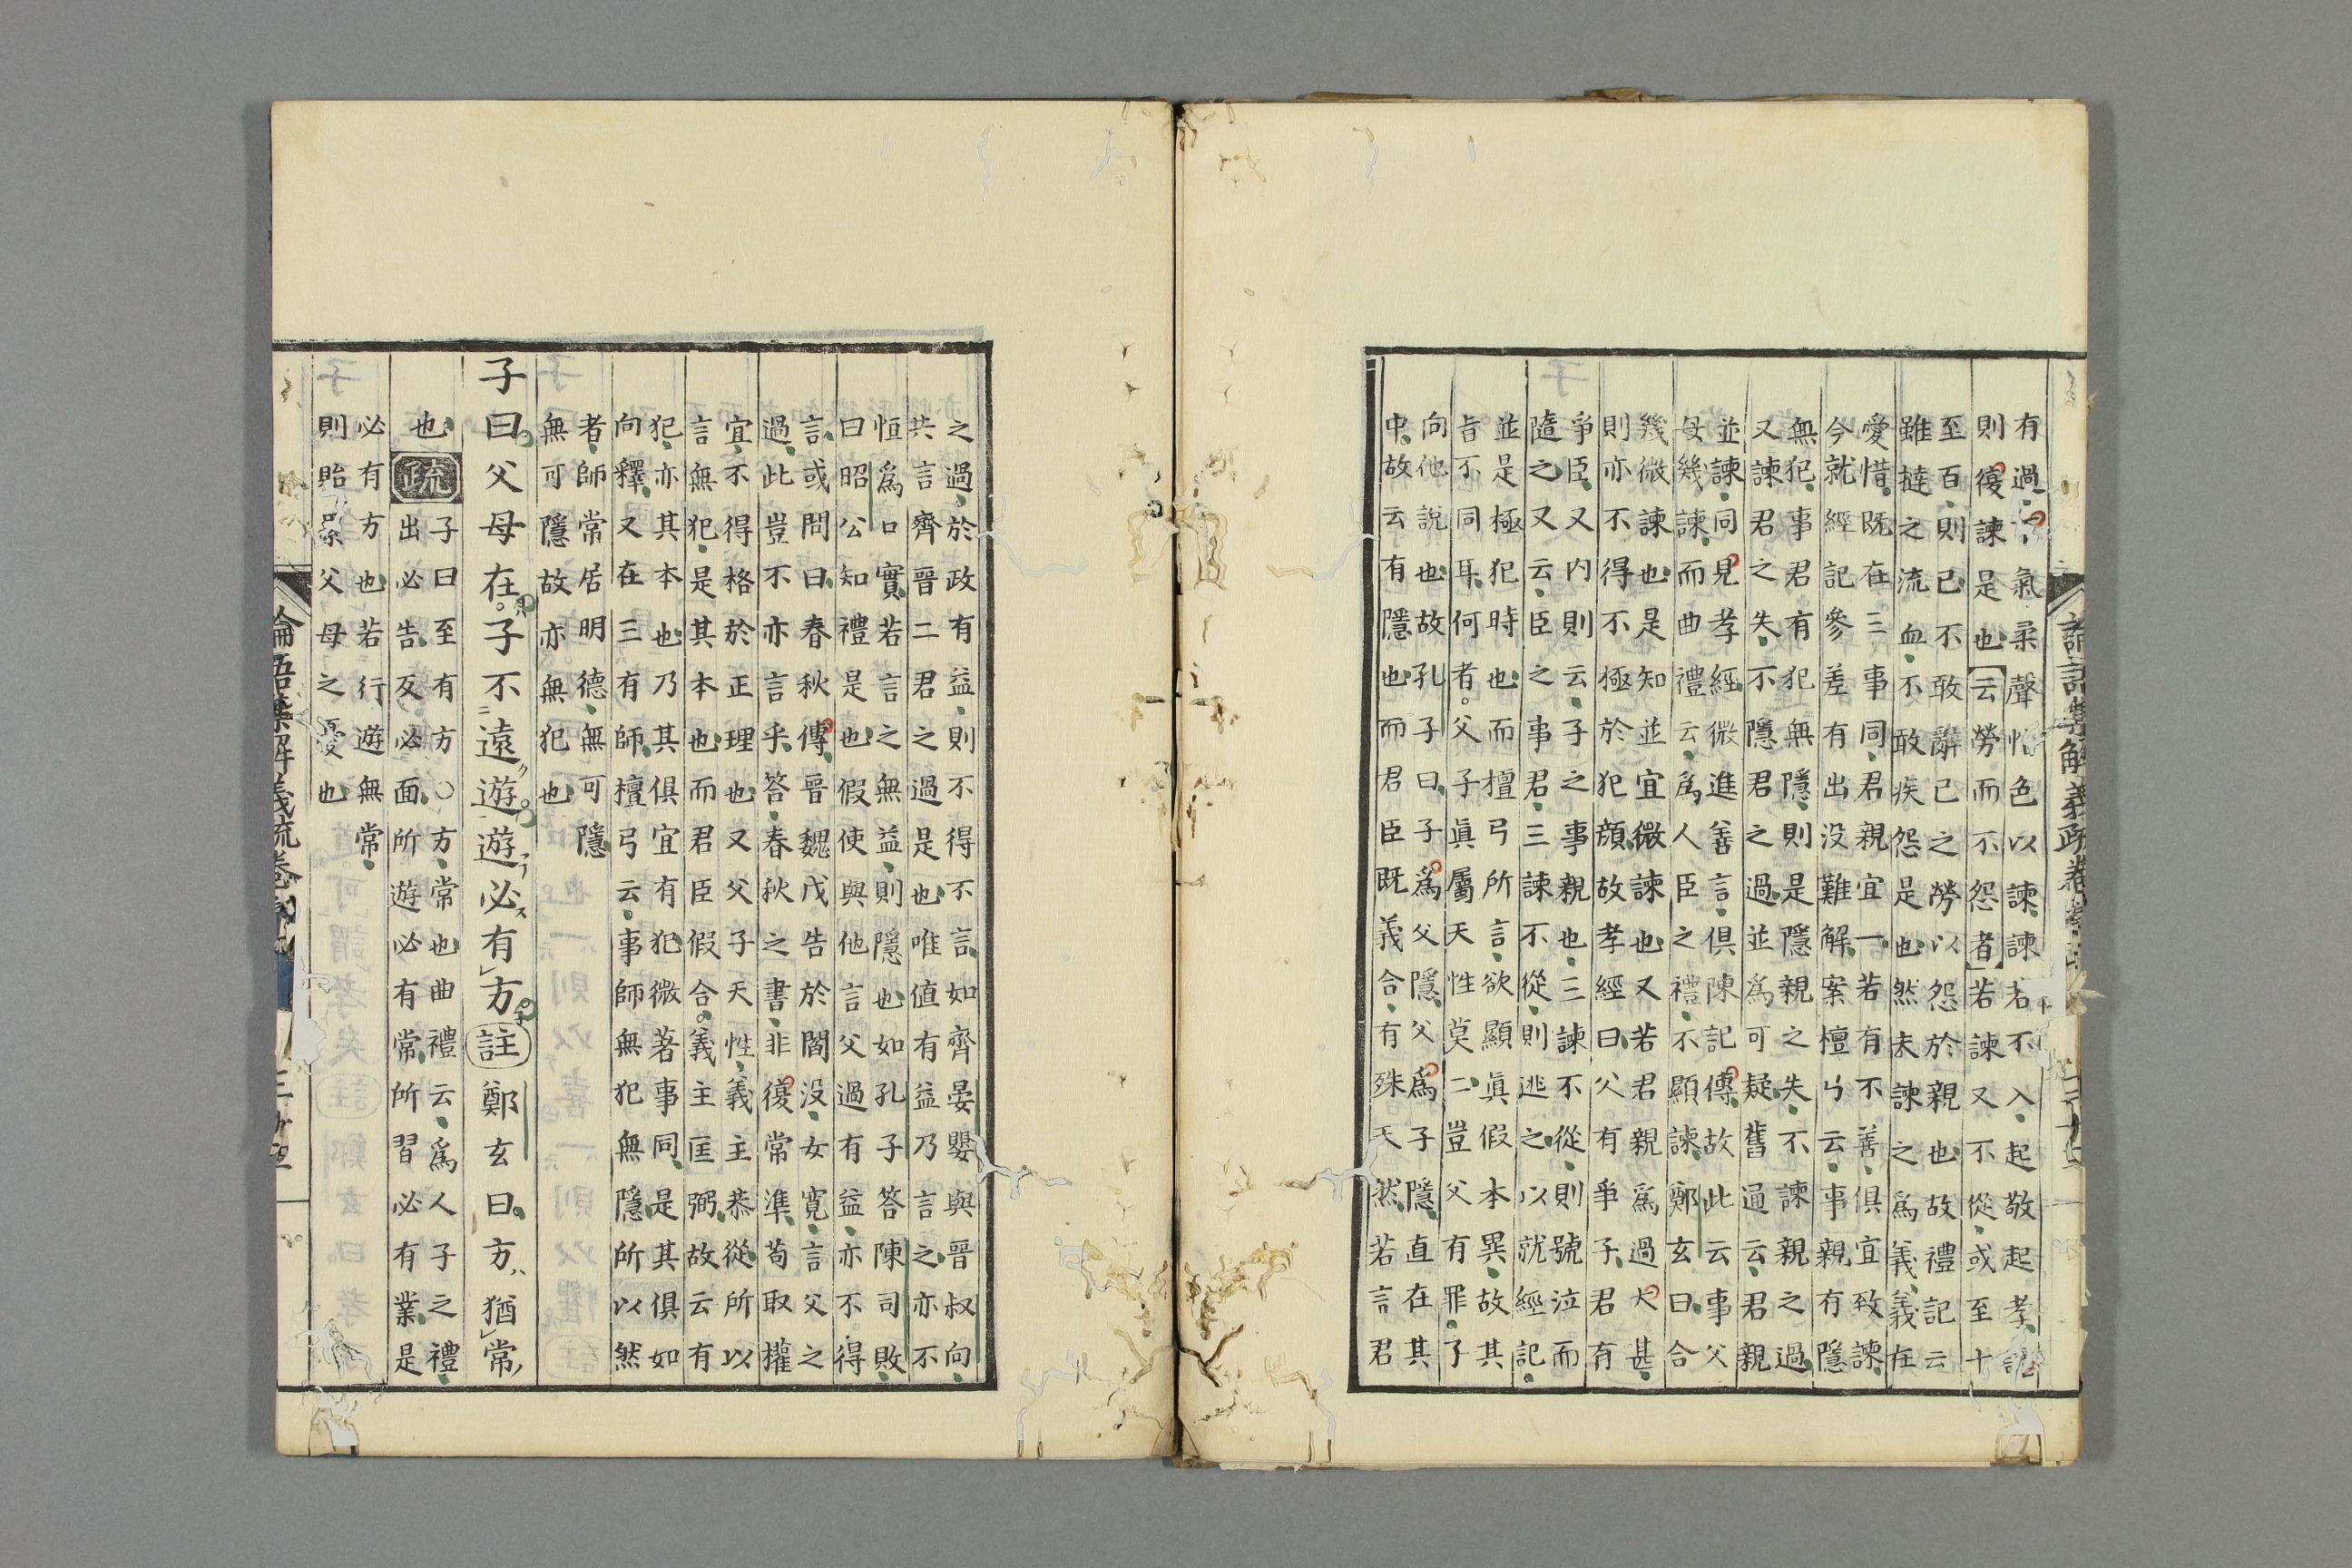 有過下氣柔聲怡色以諫諫若不入起敬起孝說
則復諫是也云勞而不怨者若諫又不從或至十
至百則己不敢辭己之勞以怨於親也故禮記云
雖撻之流血不敢疾怨是也然夫諫之爲義義在
愛惜既在三事同君親宜一若有不善俱宜致諫
今就經記參差有出没難解案檀弓云事親有隱
無犯事君有犯無隱則是隱親之失不諫親之過
又諫君之失不隱君之過並爲可疑舊通云君親
並諫同見孝經微進善言俱陳記傳故此云事父
母幾諫而曲禮云爲人臣之禮不顯諫鄭玄曰合
幾微諫也是知並宜微諫也又若君親爲過大甚
則亦不得不極於犯顔故孝經曰父有爭子君有
爭臣又内則云子之事親也三諫不從則號泣而
隨之又云臣之事君三諫不從則逃之以就經記
並是極犯時也而檀弓所言欲顯真假本異故其
旨不同耳何者父子眞屬天性莫二豈父有罪子
向他說也故孔子曰子爲父隱父爲子隱直在其
中故云有隱也而君臣既義合有殊天然若言君
之過於政有益則不得不言如齊晏嬰與晉叔向
共言齊晉二君之過是也唯值有益乃言之亦不
恒爲口實若言之無益則隱也如孔子答陳司敗
曰昭公知禮是也假使與他言父過有益亦不得
言或問曰春秋傳晉魏戊告於閻没女寬言父之
過此豈不亦言乎答春秋之書非復常準苟取權
宜不得格於正理也又父子天性義主恭從所以
言無犯是其本也而君臣假合義主匡弼故云有
犯亦其本也乃其俱宜有犯微著事同是其俱如
向釋又在三有師檀弓云事師無犯無隱所以然
者師常居明德無可隱
無可隱故亦無犯也
子曰父母在子不遠遊遊必有方註鄭玄曰方猶常
也疏子曰至有方○方常也曲禮云爲人子之禮
出必告反必面所遊必有常所習必有業是
必有方也若行遊無常
則貽累父母之憂也